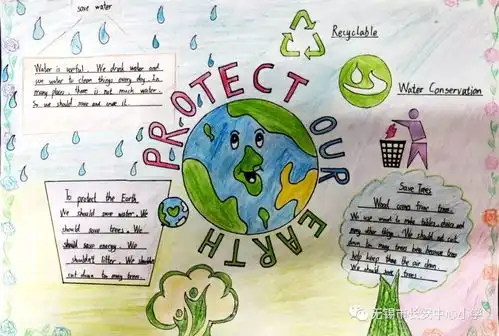 save water
Water is useful. We drink water and
use water to clean things every day. In
many places, there is not much water.
So we should save and love it.
PROTECT OUR EARTH
Recyclable
Water Conservation
To protect the Earth
We should save water. We
should save trees. We
should save energy. We
shouldn't litter. We shouldn't
cut down to many trees.
Save Trees
Wood comes from trees.
We use wood to make tables, chairs and
many other things. We should not cut
down too many trees because trees
help keep the air clean.
We should save trees.
无锡市长安中心小学